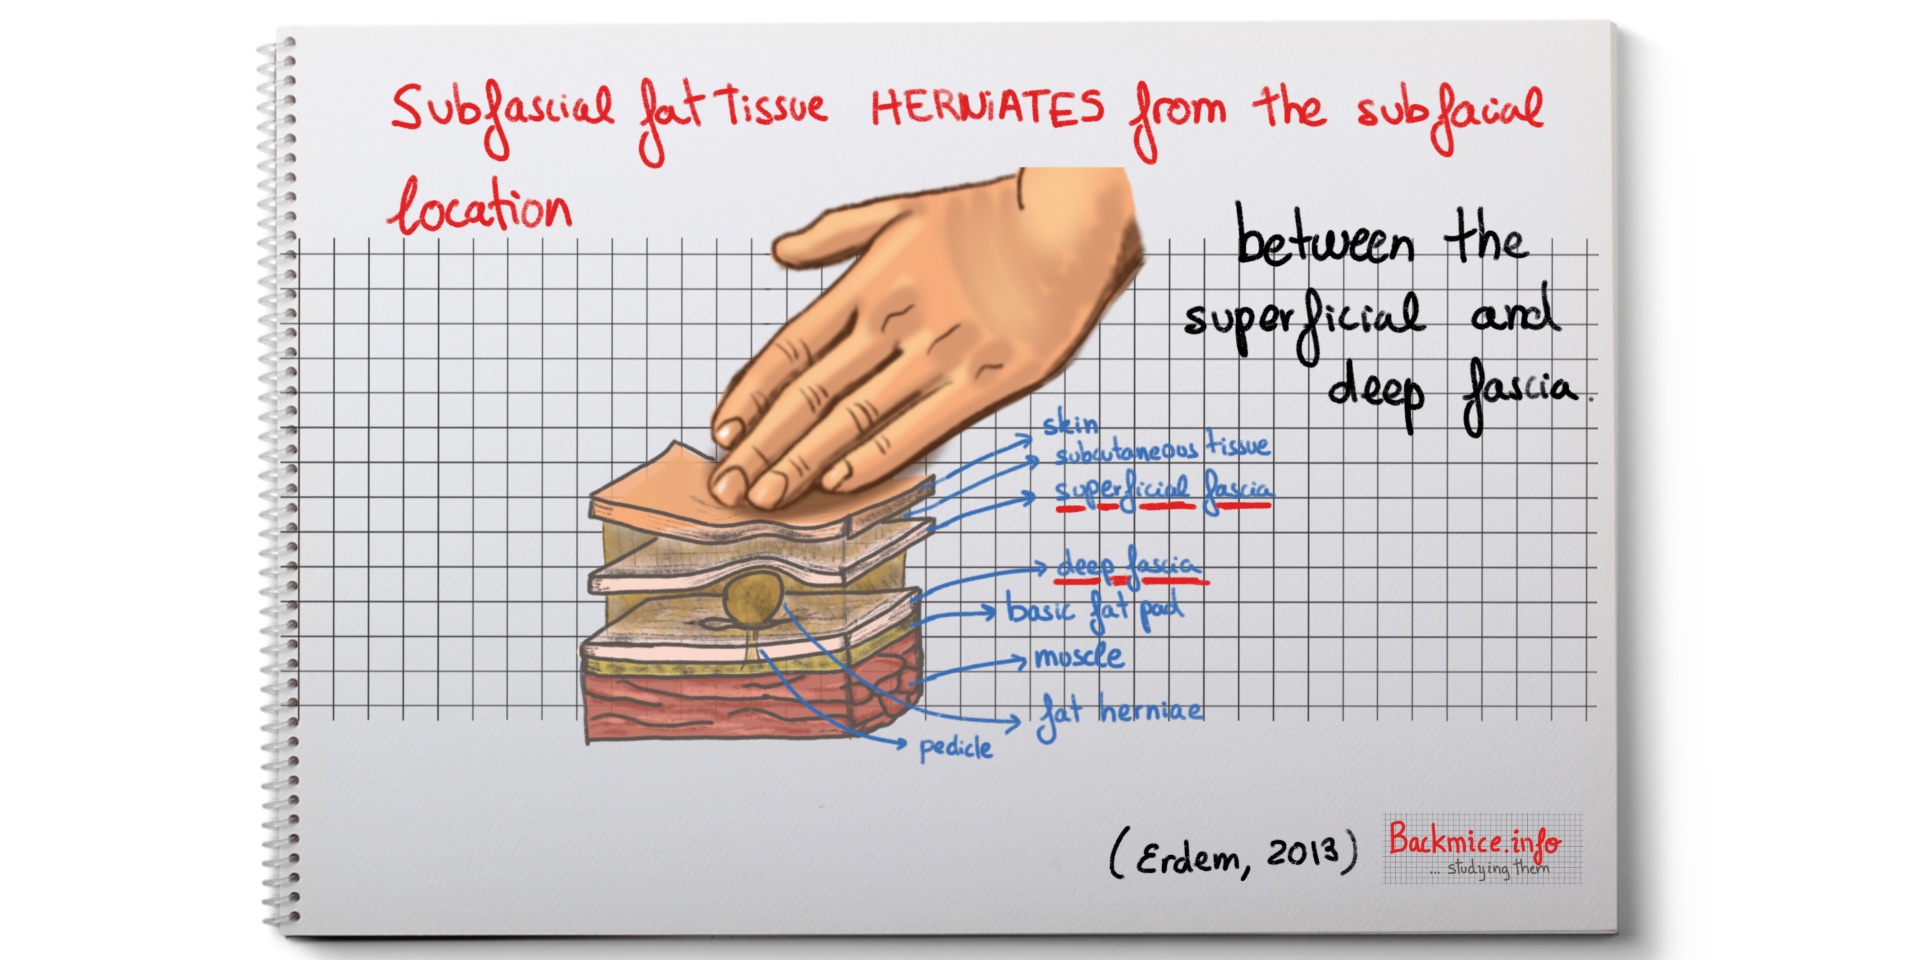 Subfascial fat tissue HERNiATES from the subfacial
location
between the
superficial and
deep fascia.
skin
subcutaneous tissue
superficial fascia
deep fascia
basic fat pad
muscle
fat herniae
pedicle
(Erdem, 2013)
Backmice.info
... studying them